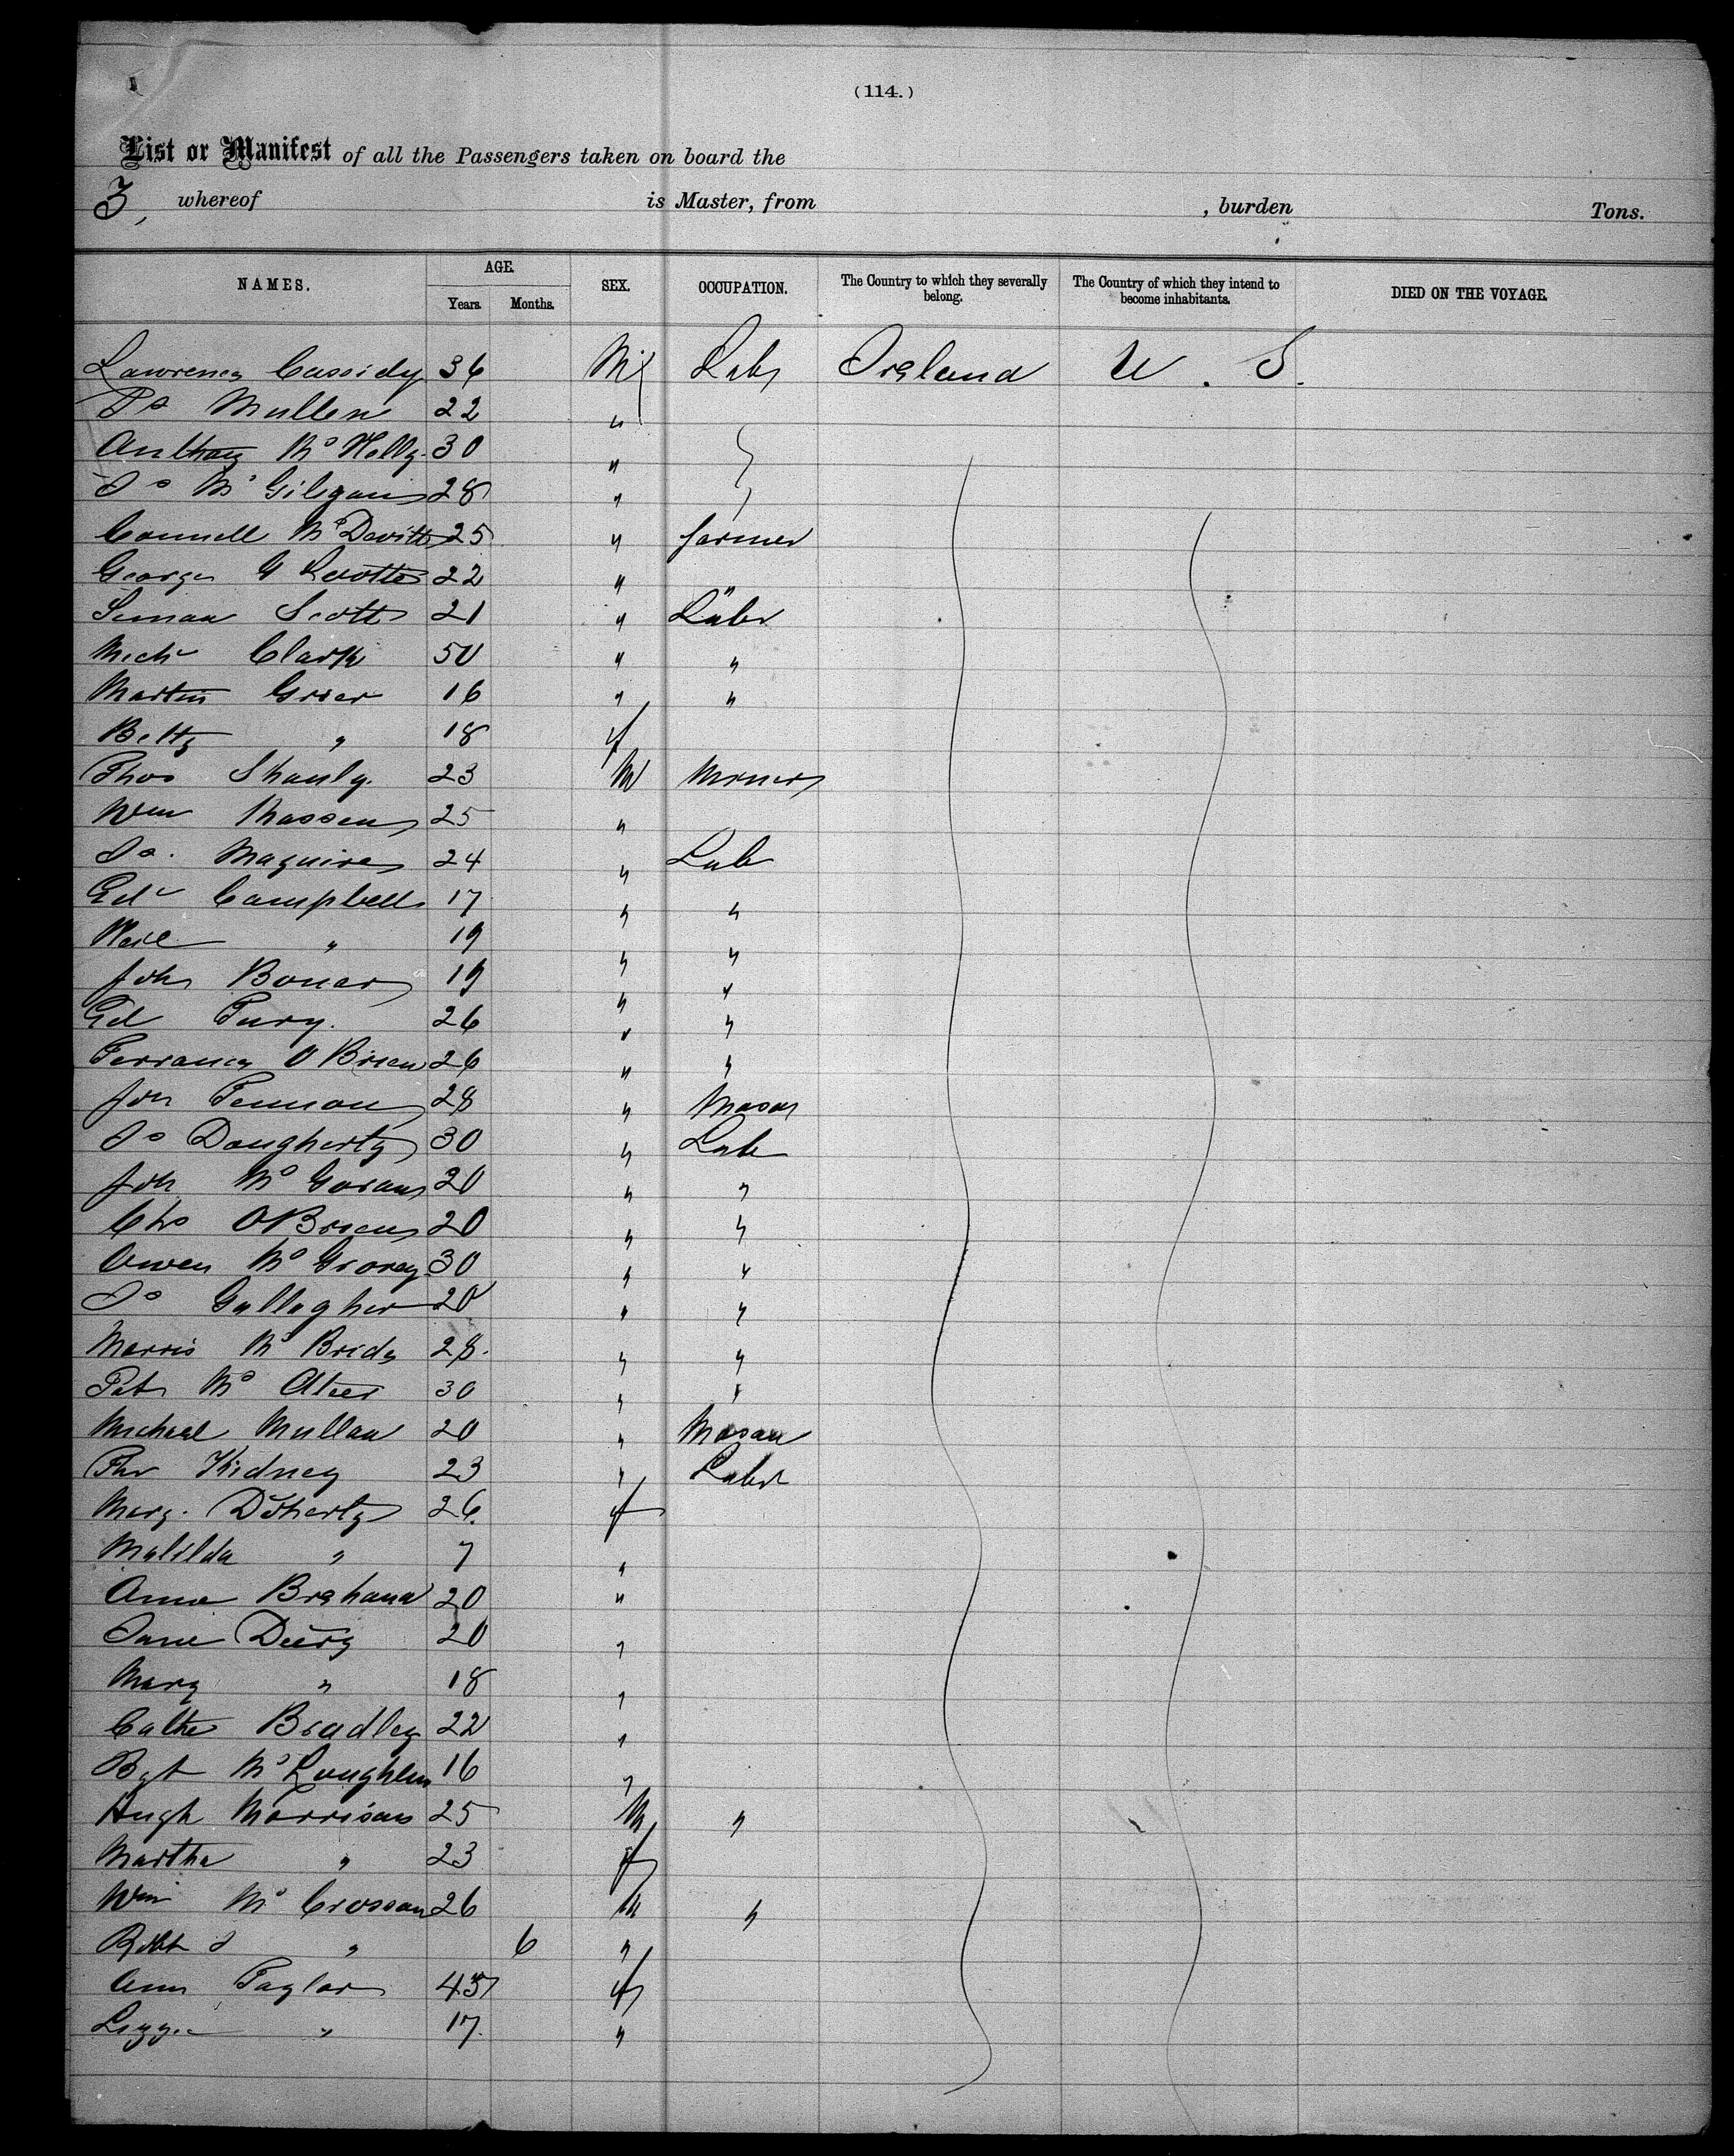 (114.)
List or Manifest of all the Passengers taken on board the
3, whereof is Master, from , burden Tons.
NAMES. AGE. Years. Months. SEX. OCCUPATION. The Country to which they severally belong. The Country of which they intend to become inhabitants. DIED ON THE VOYAGE.
Lawrence Cassidy 36 M Labr Ireland U. S.
Mullen 22 "
Anthony Mc 30 "
Js McGilgan 28 "
Connell McDevitt 25 " farmer
George G 22 " "
Scott 21 " Labr
Mich Clark 50 " "
Martin Greer 16 " "
Betty " 18 f
Thos Shanly. 23 M
Wm 25 "
Js. Maguire 24 " Lab
Ed Campbell 17 " "
" 19 " "
Joh Boner 19 " "
Ed Fury. 26 " "
Terrance O Brien 26 " "
Joh 28 " Mason
Js Dougherty 30 " Lab
Joh McGovan 20 " "
Chs OBrien 20 " "
Owen Mc 30 " "
Js Gallagher 20 " "
Morris McBride 28. " "
Pat McAteer 30 " "
Michael Mullan 20 " Mason
Kidney 23 " Labr
Marg. Doherty 26. f
Matilda " 7 "
Anne 20 "
Jane Deery 20 "
Mary " 18 "
Cathe Bradley 22 "
Bgt McLoughlin 16 "
Hugh Morrison 25 M "
Martha " 23 f
Wm McCrossan 26 M "
Robt J " 6 "
Ann Taylor 45 f
Lizzie " 17. "